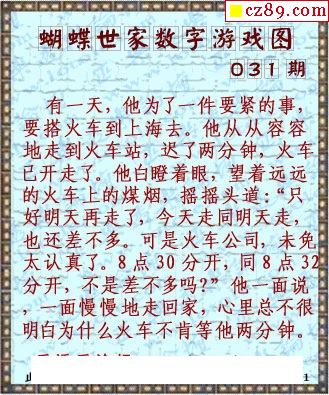 cz89.com
蝴蝶世家数字游戏图
031期
有一天，他为了一件要紧的事，
要搭火车到上海去。他从从容容
地走到火车站，迟了两分钟，火车
已开走了。他白瞪着眼，望着远远
的火车上的煤烟，摇摇头道：“只
好明天再走了，今天走同明天走，
也还差不多。可是火车公司，未免
太认真了。8点30分开，同8点32
分开，不是差不多吗?”他一面说，
一面慢慢地走回家，心里总不很
明白为什么火车不肯等他两分钟。